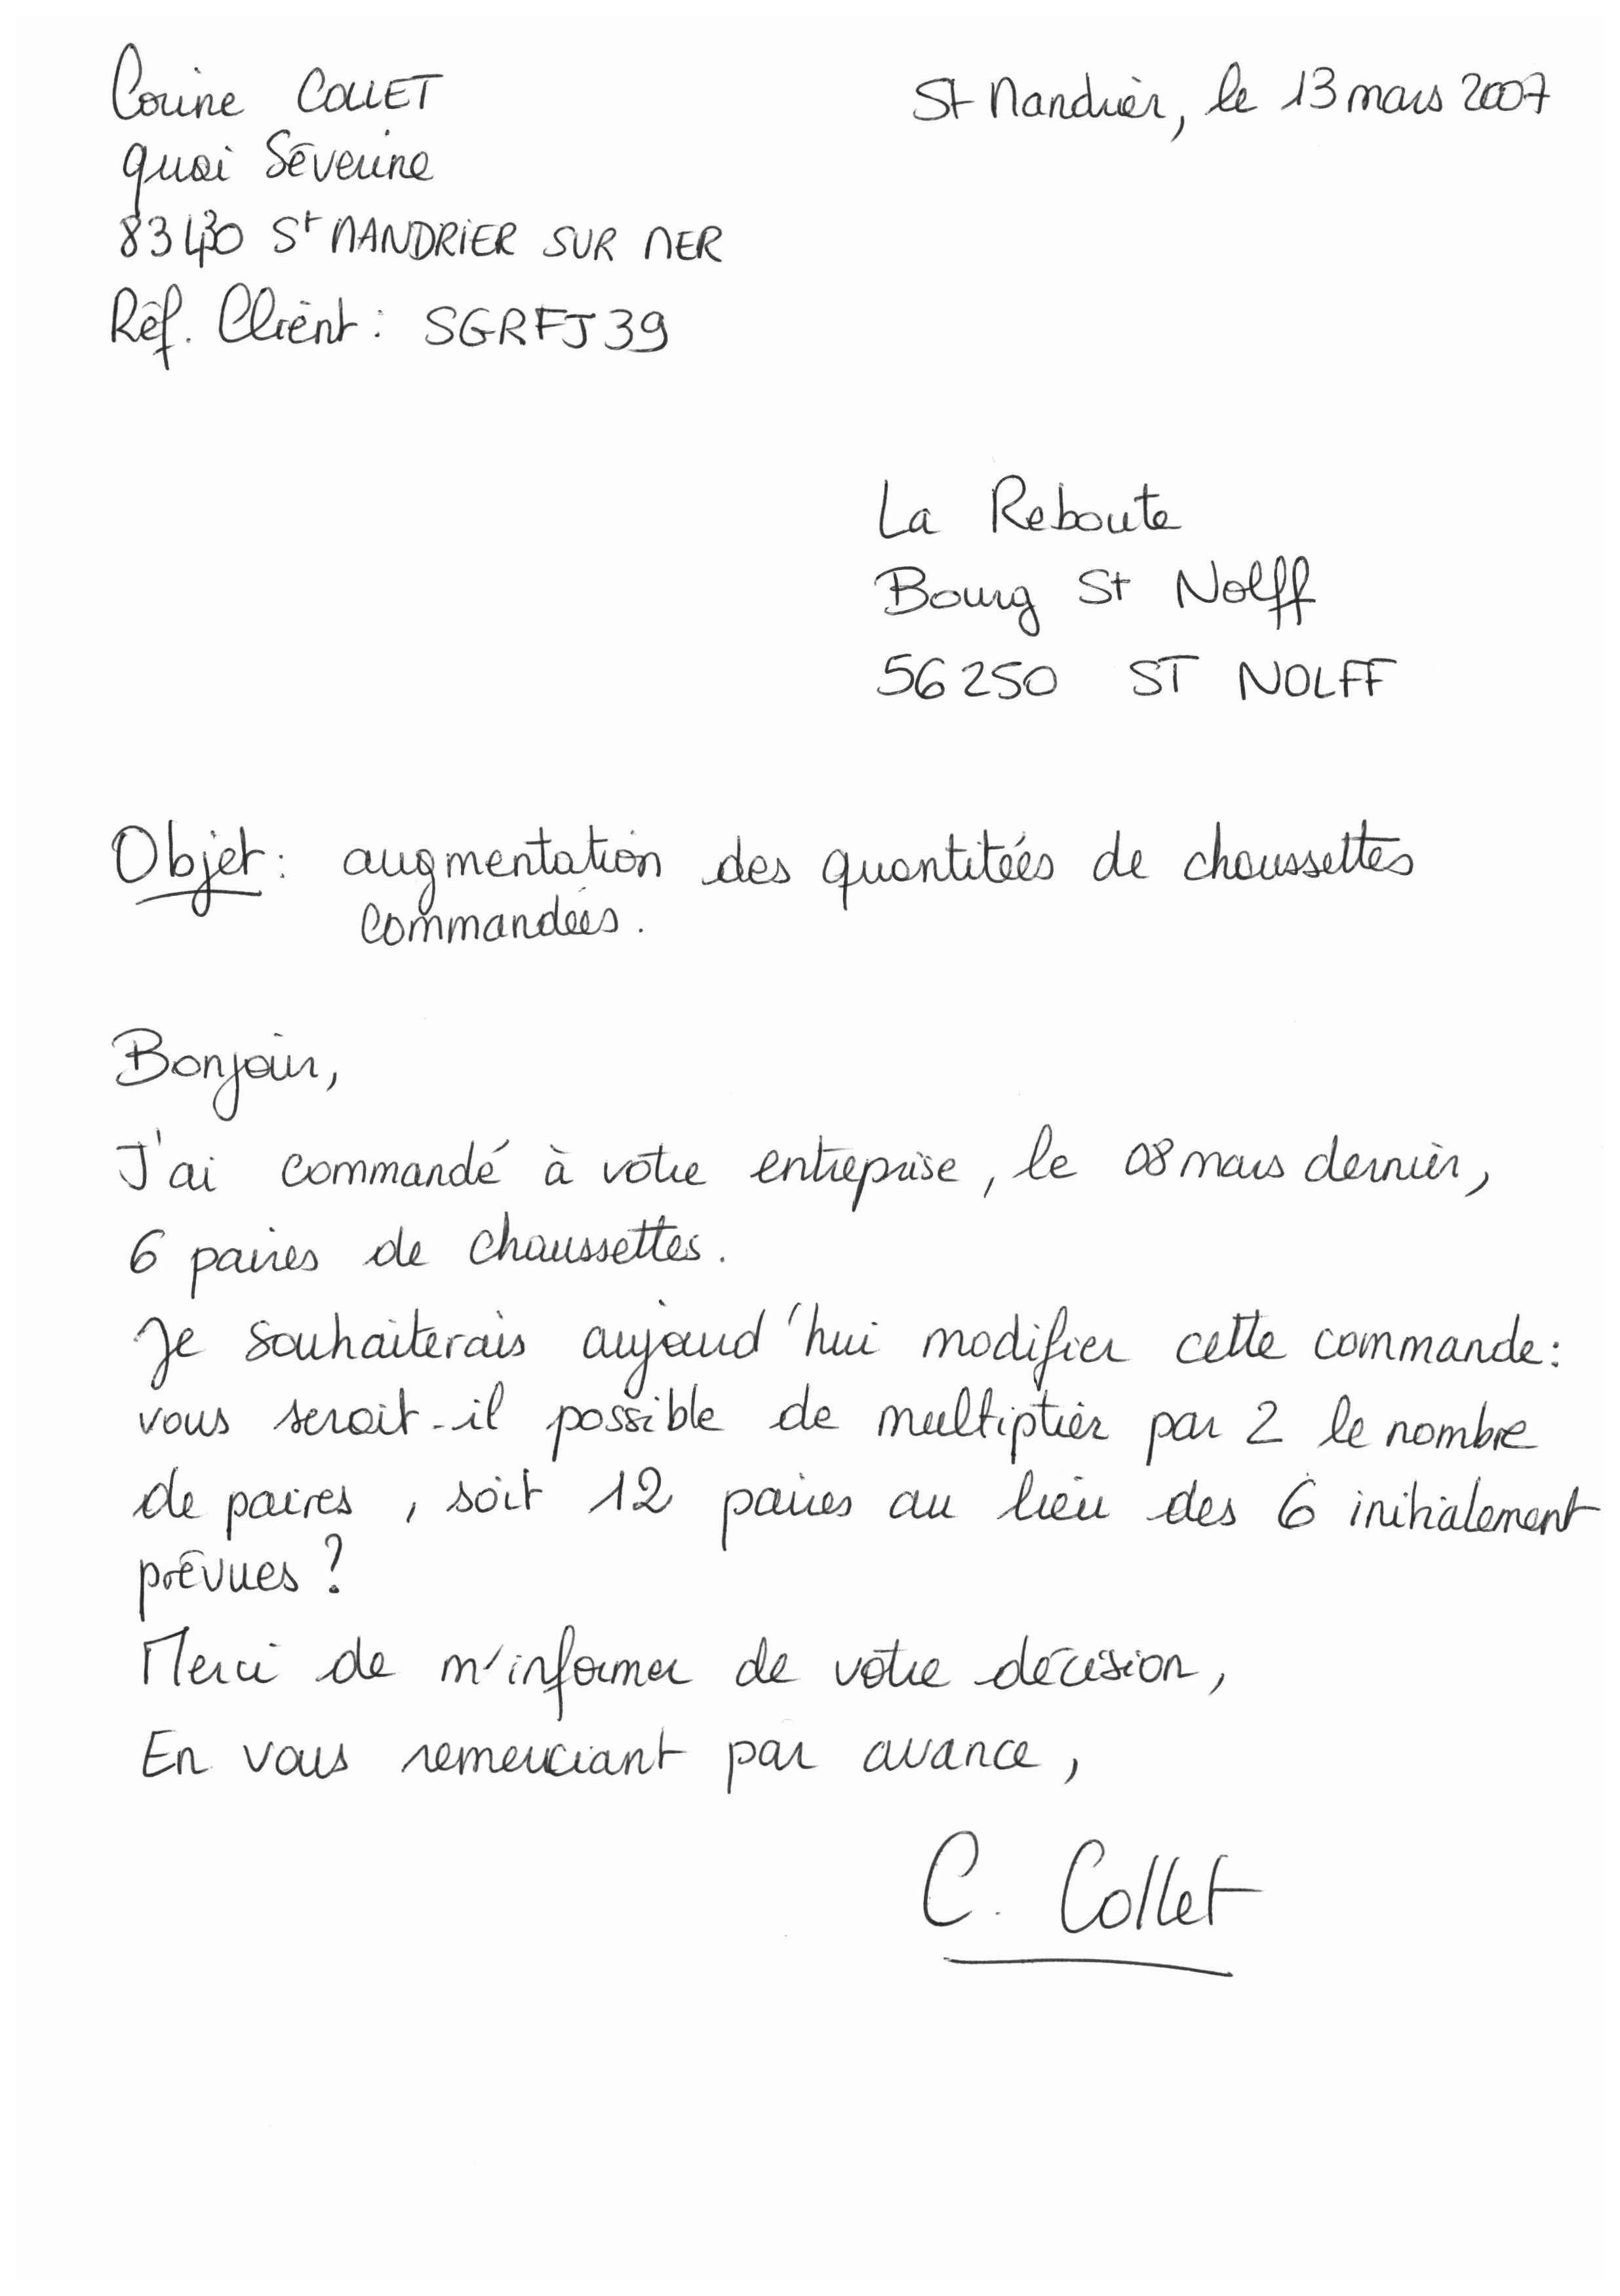 Corine COLLET
St Mandrier, le 13 mars 2007
quai Séverine
83430 St MANDRIER SUR MER
Réf. Client : SGRFJ39
La Reboute
Bourg St Nolff
56250 ST NOLFF
Objet : augmentation des quantitéés de chaussettes
commandées.
Bonjour,
J'ai commandé à votre entreprise, le 08 mars dernier,
6 paires de chaussettes.
Je souhaiterais aujourd'hui modifier cette commande :
vous serait-il possible de multiplier par 2 le nombre
de paires, soit 12 paires au lieu des 6 initialement
prévues ?
Merci de m'informer de votre décision,
En vous remerciant par avance,
C. Collet